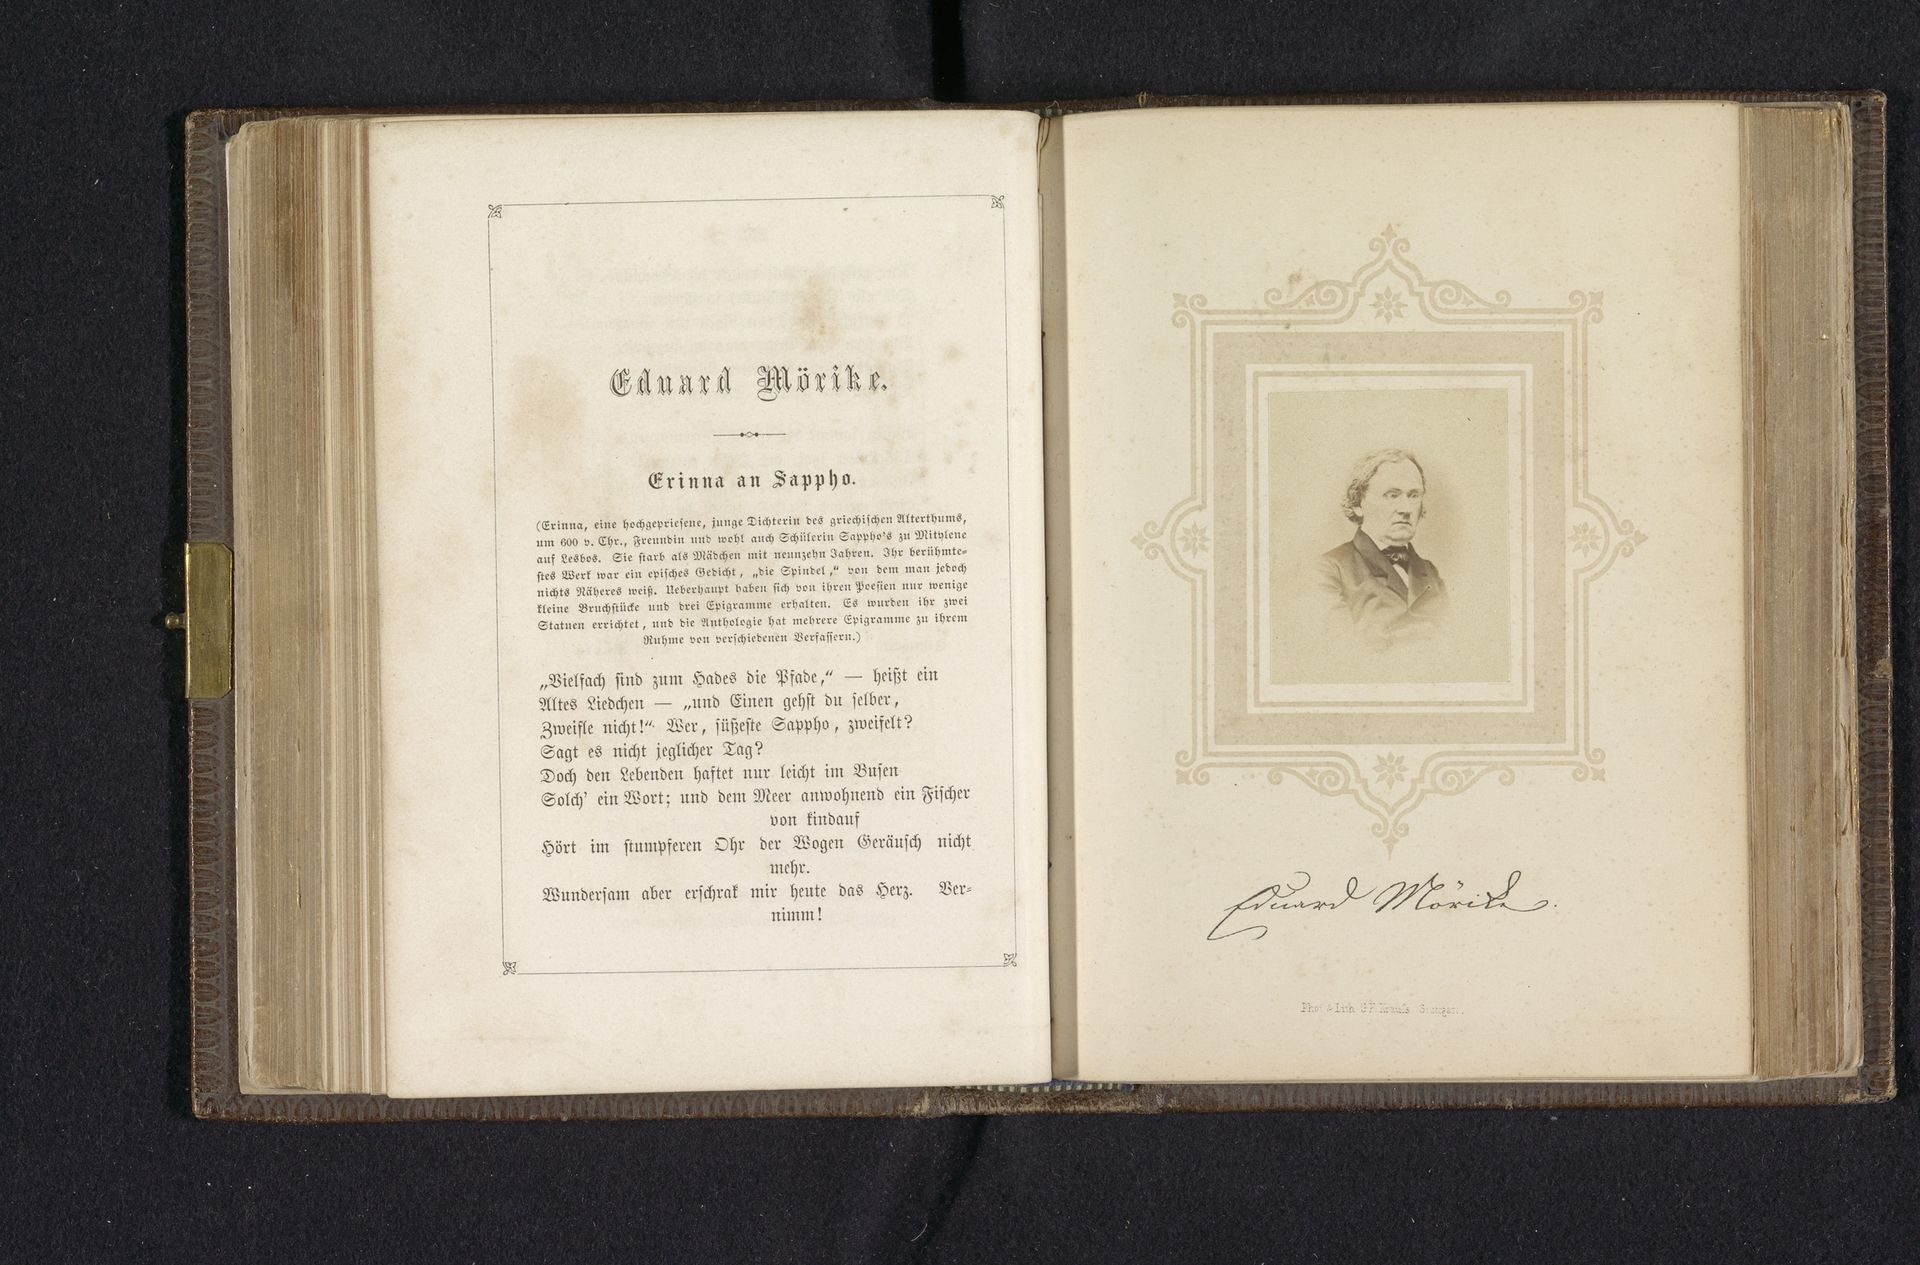 Eduard Mörike.
Erinna an Sappho.
(Erinna, eine hochgepriesene, junge Dichterin des griechischen Alterthums,
um 600 v. Chr., Freundin und wohl auch Schülerin Sappho's zu Mitylene
auf Lesbos. Sie starb als Mädchen mit neunzehn Jahren. Ihr berühmte-
stes Werk war ein episches Gedicht, „die Spindel,“ von dem man jedoch
nichts Näheres weiß. Ueberhaupt haben sich von ihren Poesien nur wenige
kleine Bruchstücke und drei Epigramme erhalten. Es wurden ihr zwei
Statuen errichtet, und die Anthologie hat mehrere Epigramme zu ihrem
Ruhme von verschiedenen Verfassern.)
„Vielfach sind zum Hades die Pfade,“ — heißt ein
Altes Liedchen — „und Einen gehst du selber,
Zweifle nicht!“ Wer, süßeste Sappho, zweifelt?
Sagt es nicht jeglicher Tag?
Doch den Lebenden haftet nur leicht im Busen
Solch' ein Wort; und dem Meer anwohnend ein Fischer
von kindauf
Hört im stumpferen Ohr der Wogen Geräusch nicht
mehr.
Wundersam aber erschrak mir heute das Herz. Ver-
nimm!
Eduard Mörike.
Phot & Lith